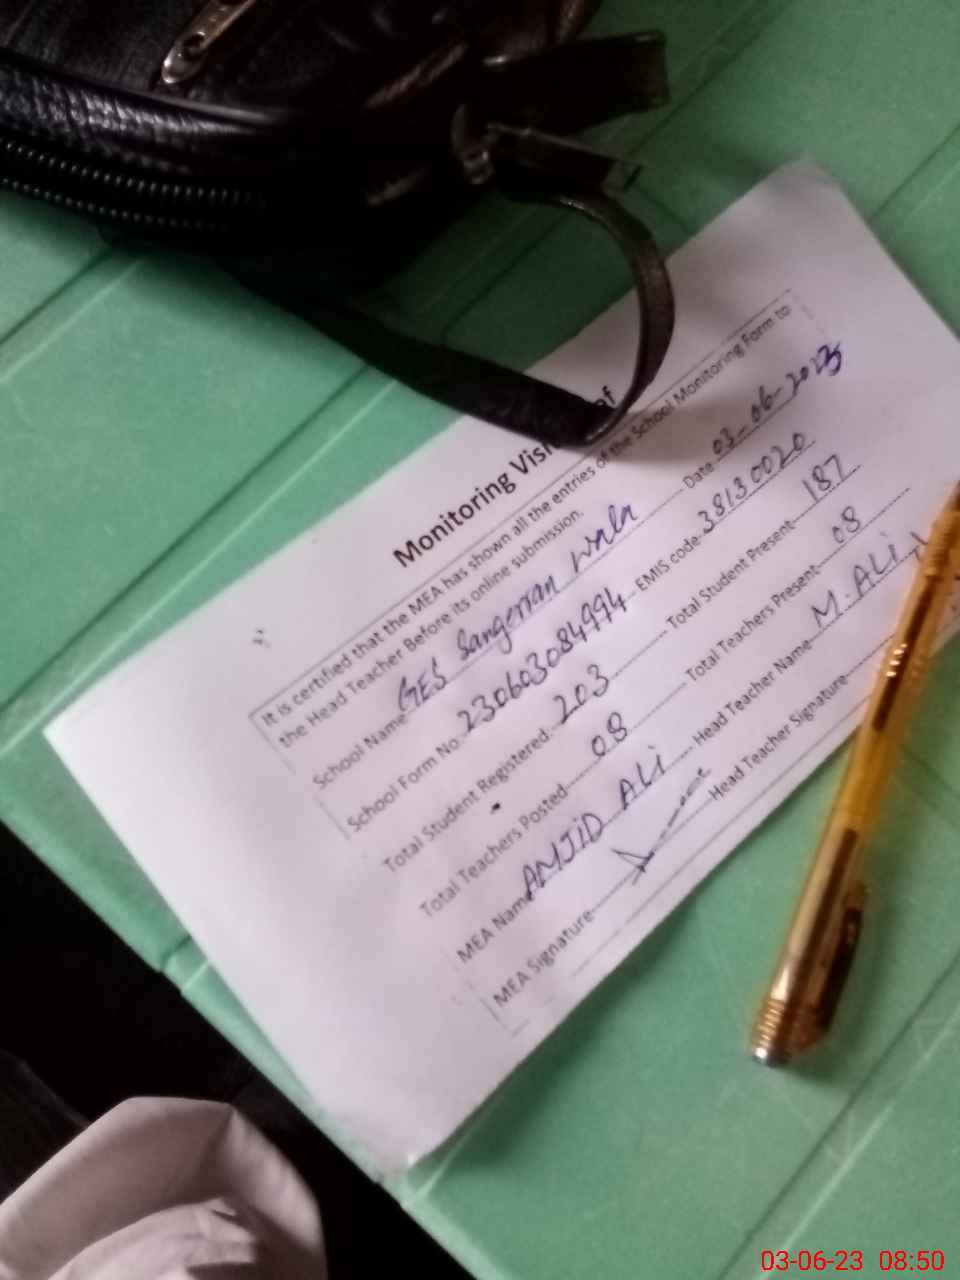 Monitoring Visi of
It is certified that the MEA has shown all the entries of the School Monitoring Form to
the Head Teacher Before its online submission.
School Name GES Sangerran Wala Date 03-06-2023
School Form No. 23060308 4994 EMIS code 38130020
Total Student Registered. 203 Total Student Present 187
Total Teachers Posted 08 Total Teachers Present 08
MEA Name AMJID ALI Head Teacher Name M. ALI
MEA Signature Head Teacher Signature
03-06-23 08:50